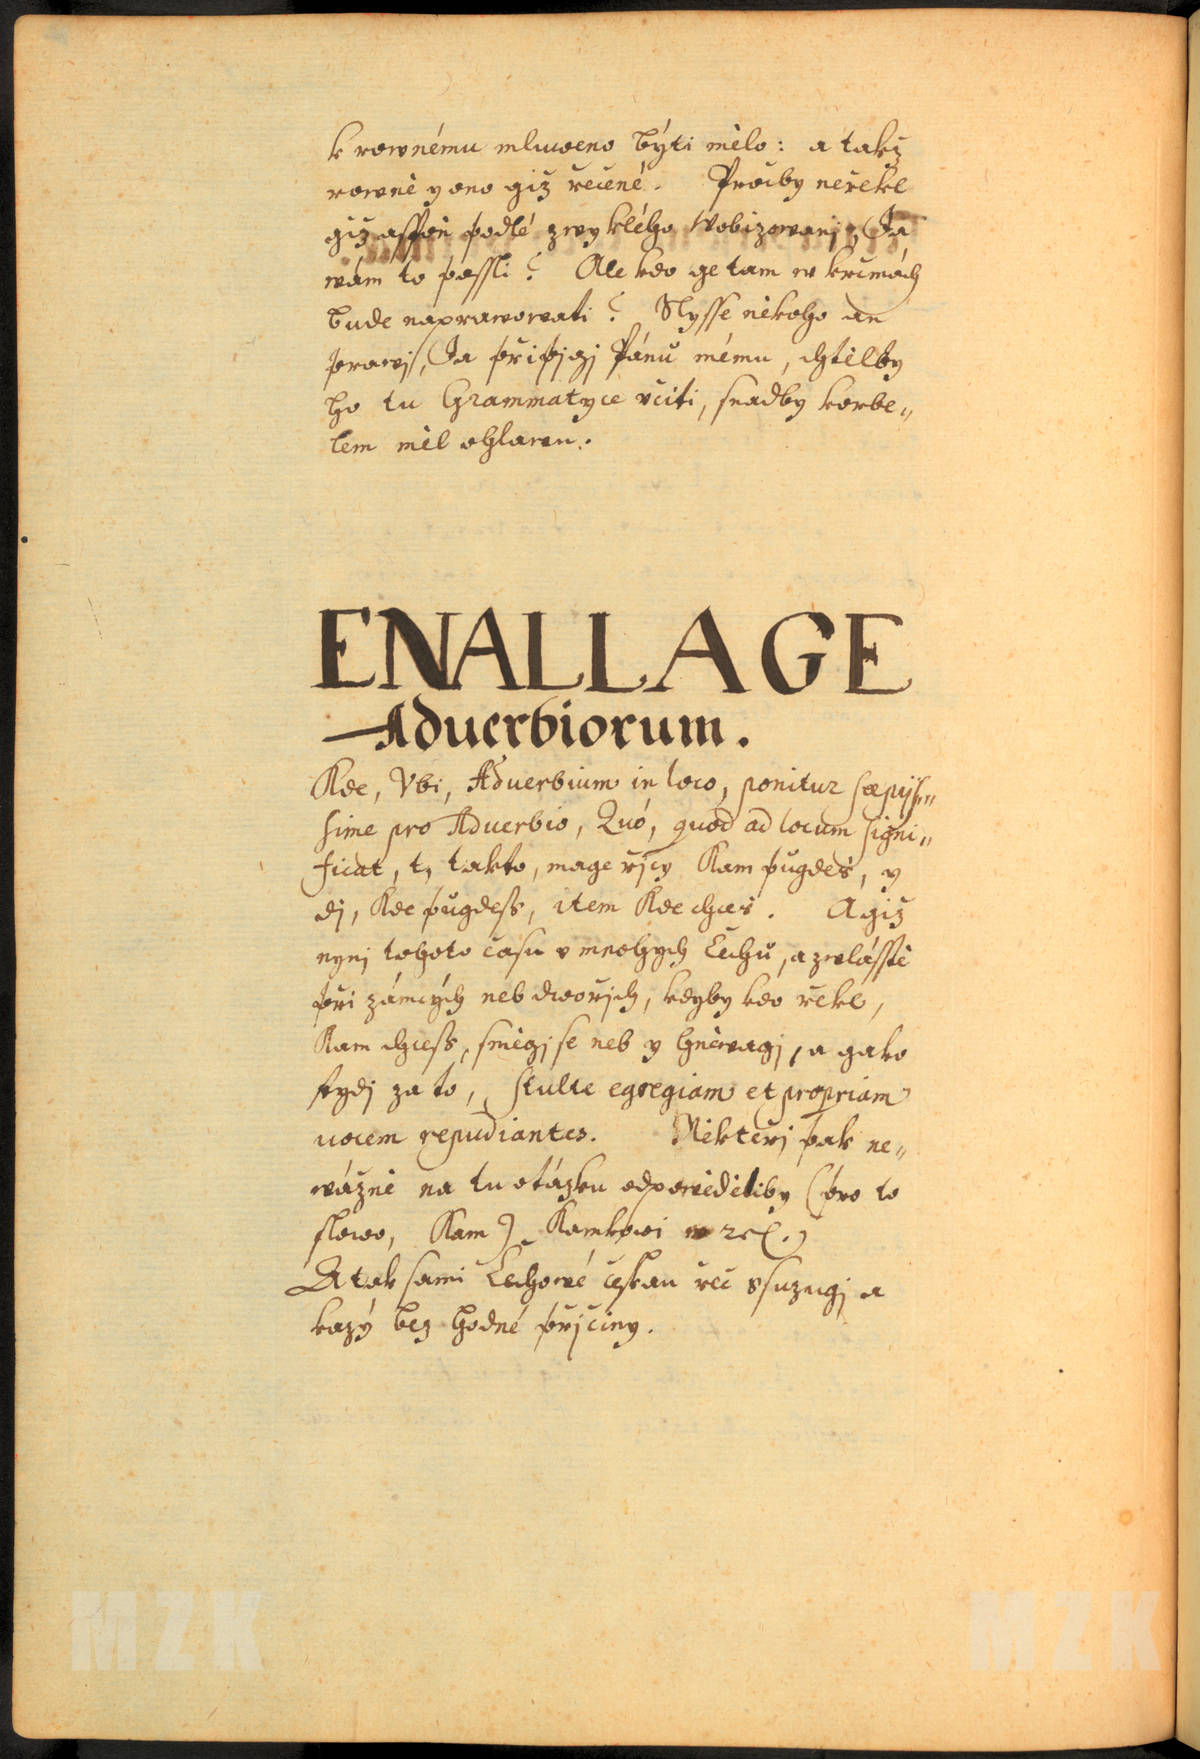 k rownému mluweno býti mělo: a takž
rowně y ono giž řečené. Pročby neřekl
giž aspoň podlé zwyklého Wobizowanj, Ja
wám to possli? Ale kdo ge tam w krčmách
bude naprawowati? Slysse někoho an
prawj, Ja připjgj Pánu mému, chtělby
ho tu Grammatyce včiti, snadby korbe„
lem měl o hlawu.
ENALLAGE
Aduerbiorum.
Kde, Vbi, Aduerbium in loco, ponitur sæpis„
sime pro Aduerbio, Quó, quod ad locum signi„
ficat, t, takto, mage řjcy Kam pŭgdeš, y
dj, Kde pŭgdess, item Kde chceš. A giž
nynj tohoto času v mnohých Čechŭ, a zwlásstě
při zámcých neb dwořjch, kdyby kdo řekl,
Kam chcess, směgj se neb y hněwagj, a gako
stydj za to, stulte egregiam et propriam
uocem repudiantes. Někteřj pak ne„
wážně na tu otázku odpowěděliby (pro to
slowo, Kam) Kamkowi w
A tak sami Čechowé českau řeč ssuzugj a
kazý bez hodné přjčiny.
MZK MZK